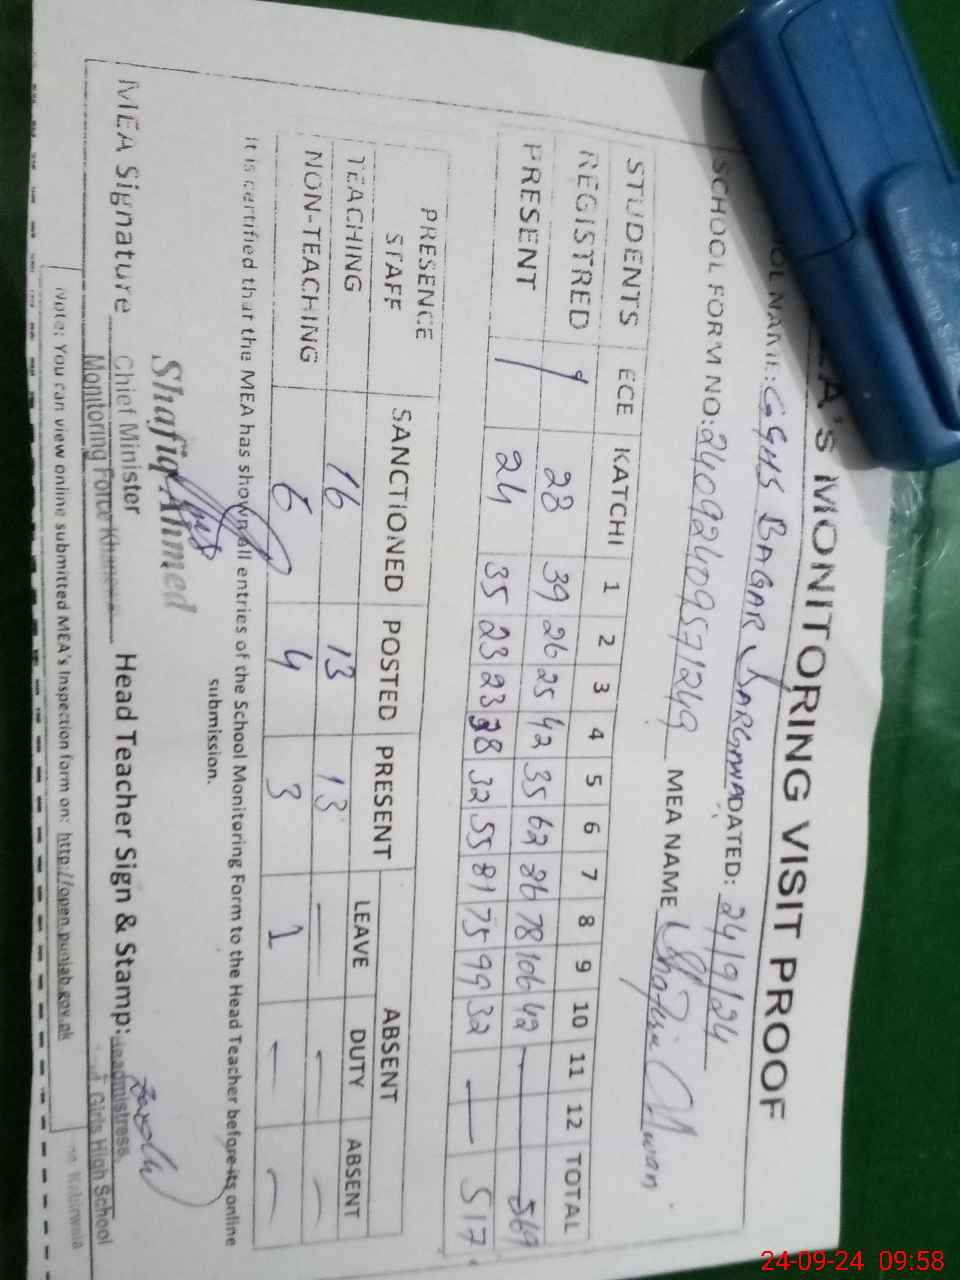 MEA'S MONITORING VISIT PROOF
SCHOOL NAME: GGHS BAGAR SARGANA DATED: 24/9/24
SCHOOL FORM NO: 24092409571249 MEA NAME
STUDENTS ECE KATCHI 1 2 3 4 5 6 7 8 9 10 11 12 TOTAL
REGISTRED 28 39 26 25 42 35 62 78 106 42 — 569
PRESENT 24 35 23 23 38 32 55 81 75 99 32 — 517
PRESENCE STAFF SANCTIONED POSTED PRESENT ABSENT
LEAVE DUTY ABSENT
TEACHING 16 13 13 — — —
NON-TEACHING 6 4 3 1 — —
It is certified that the MEA has shown all entries of the School Monitoring Form to the Head Teacher before its online
submission.
Shafiq Ahmed
MEA Signature Chief Minister Head Teacher Sign & Stamp: Headmistress
Monitoring Force Girls High School
Note: You can view online submitted MEA's Inspection form on: http://open.punjab.gov.pk
24-09-24 09:58